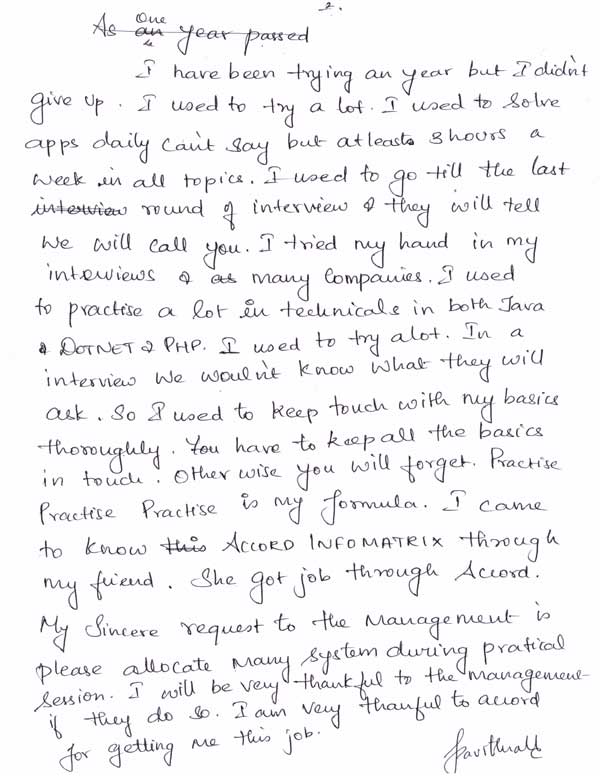 2.
As one year passed
I have been trying an year but I didn't
give up. I used to try a lot. I used to solve
apps daily can't say but atleast 3 hours a
week in all topics. I used to go till the last
interview round of interview & they will tell
we will call you. I tried my hand in my
interviews & as many companies. I used
to practise a lot in technicals in both Java
& DOTNET & PHP. I used to try alot. In a
interview we wouldn't know what they will
ask. So I used to keep touch with my basics
thoroughly. You have to keep all the basics
in touch. Other wise you will forget. Practise
Practise Practise is my formula. I came
to know this ACCORD INFOMATRIX through
my friend. She got job through Accord.
My Sincere request to the Management is
please allocate many system during pratical
session. I will be very thankful to the management
if they do so. I am very thanful to accord
for getting me this job.